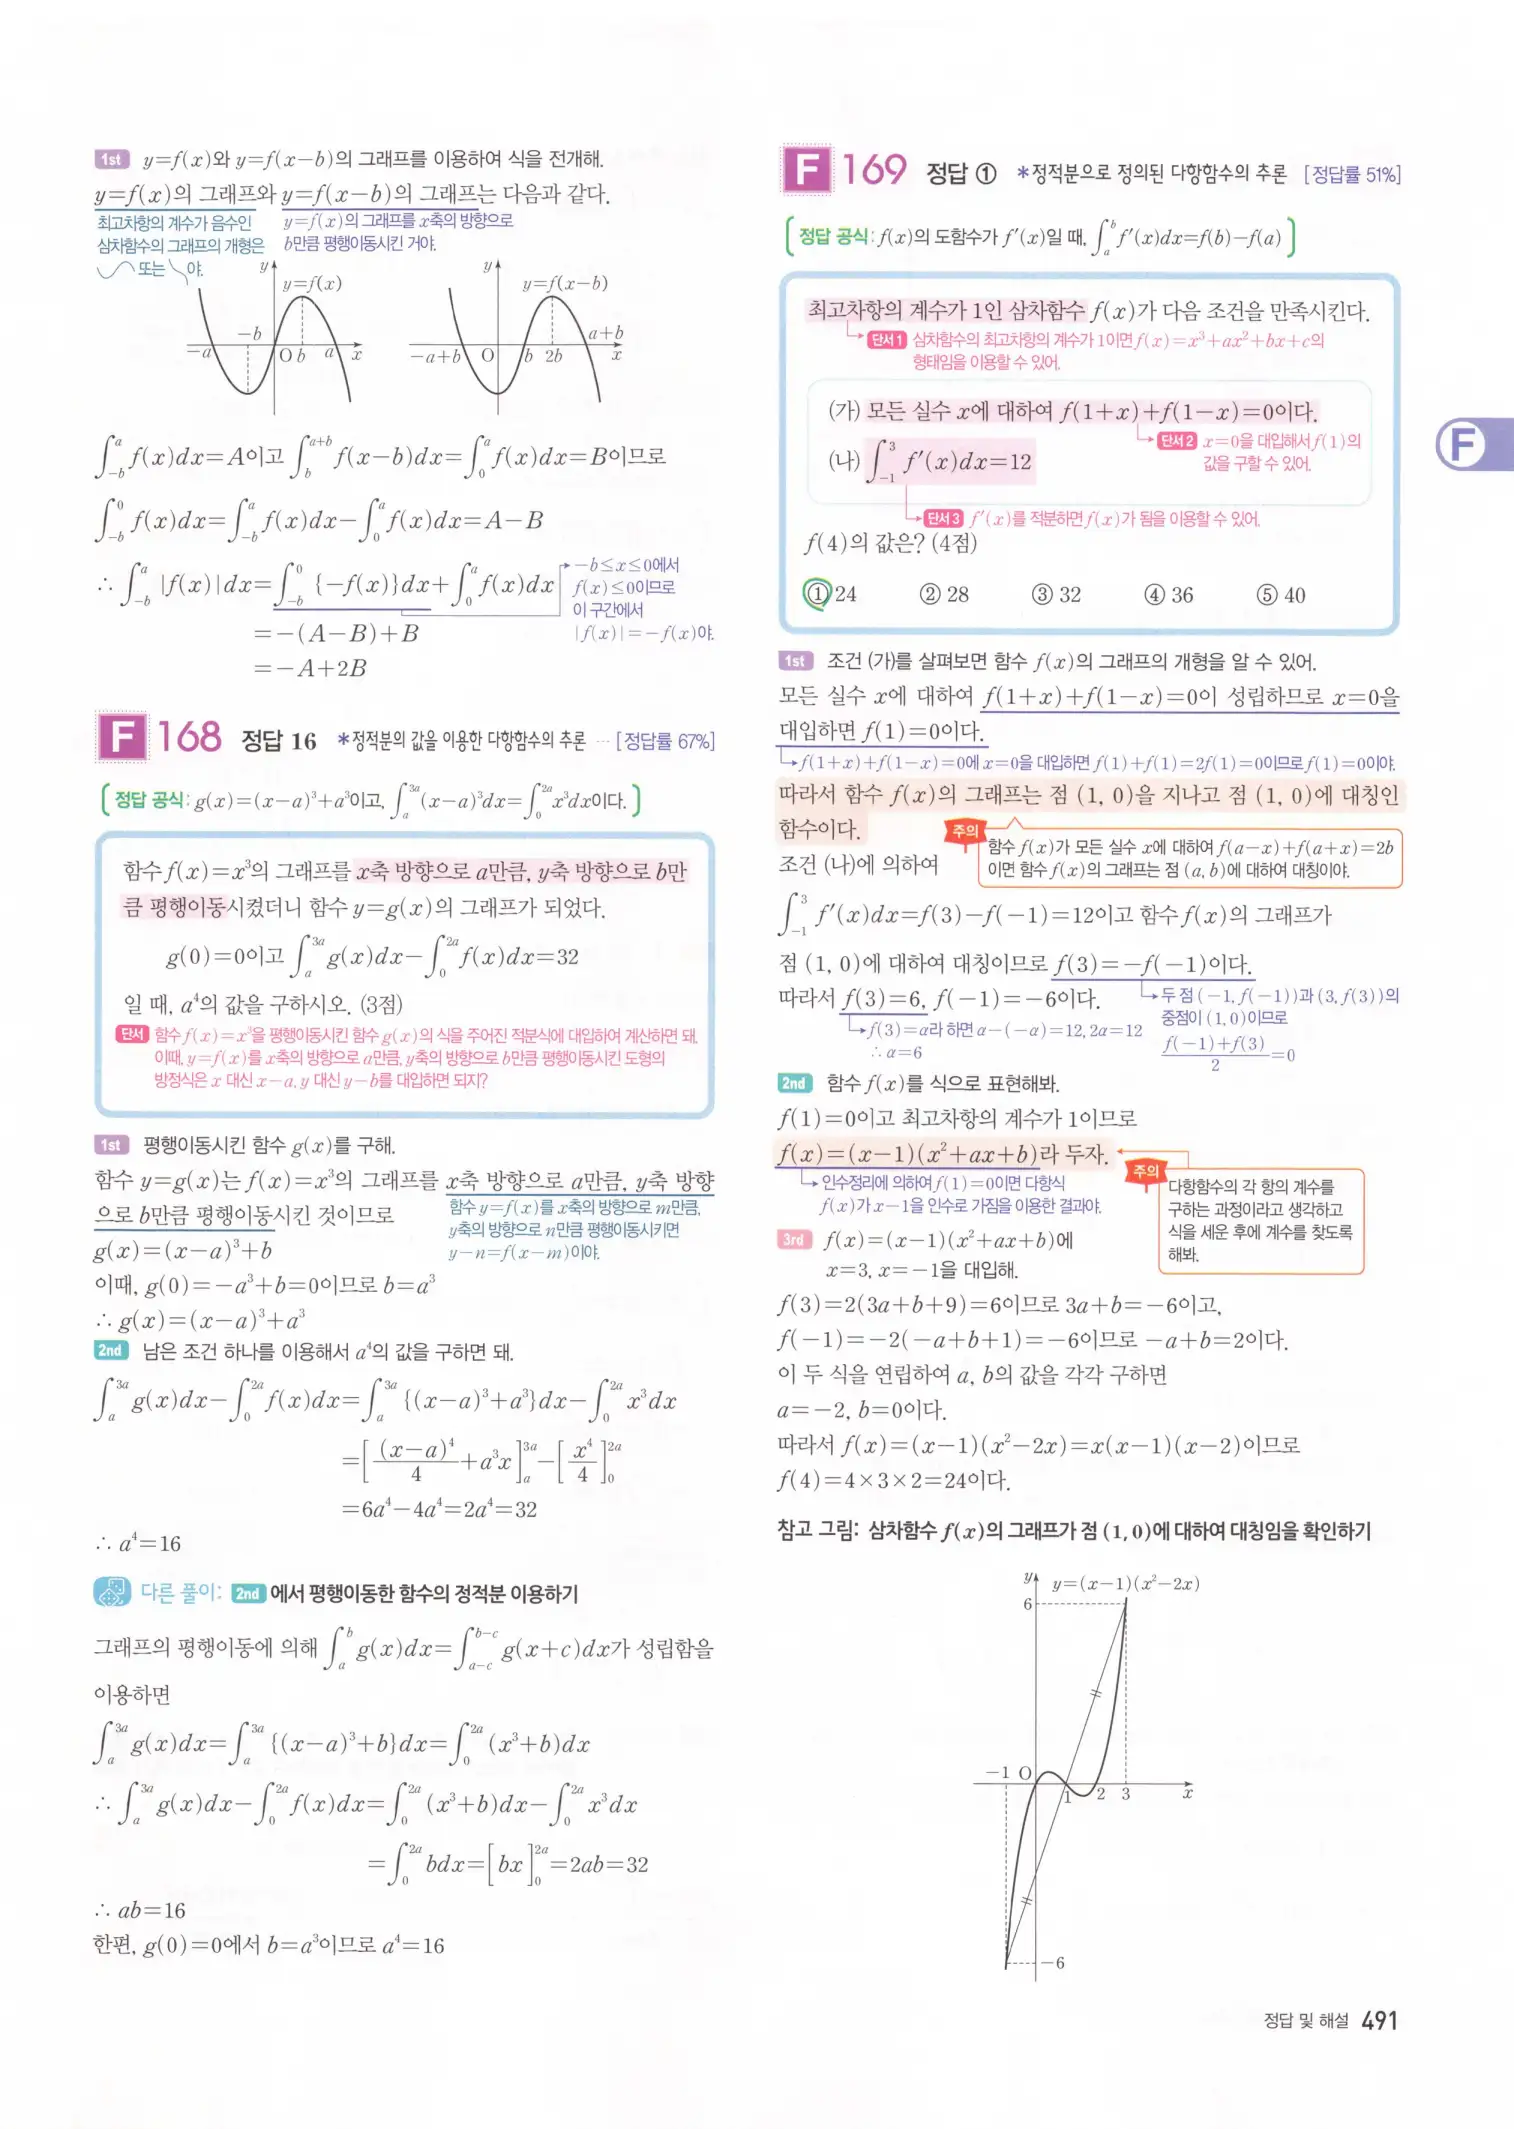 1st y=f(x)와 y=f(x-b)의 그래프를 이용하여 식을 전개해.
y=f(x)의 그래프와 y=f(x-b)의 그래프는 다음과 같다.
최고차항의 계수가 음수인
삼차함수의 그래프의 개형은
또는 야.
y=f(x)의 그래프를 x축의 방향으로
b만큼 평행이동시킨 거야.
y y=f(x) -b -a O b a x
y y=f(x-b) a+b -a+b O b 2b x
∫_{-b}^{a} f(x)dx=A이고 ∫_{b}^{a+b} f(x-b)dx=∫_{0}^{a} f(x)dx=B이므로
∫_{-b}^{0} f(x)dx=∫_{-b}^{a} f(x)dx-∫_{0}^{a} f(x)dx=A-B
∴ ∫_{-b}^{a} |f(x)|dx=∫_{-b}^{0} {-f(x)}dx+∫_{0}^{a} f(x)dx
-b≤x≤0에서
f(x)≤0이므로
이 구간에서
|f(x)|=-f(x)야.
=-(A-B)+B
=-A+2B
F 168 정답 16 *정적분의 값을 이용한 다항함수의 추론 ··· [정답률 67%]
정답 공식: g(x)=(x-a)³+a³이고, ∫_{a}^{3a} (x-a)³dx=∫_{0}^{2a} x³dx이다.
함수 f(x)=x³의 그래프를 x축 방향으로 a만큼, y축 방향으로 b만
큼 평행이동시켰더니 함수 y=g(x)의 그래프가 되었다.
g(0)=0이고 ∫_{a}^{3a} g(x)dx-∫_{0}^{2a} f(x)dx=32
일 때, a⁴의 값을 구하시오. (3점)
단서 함수 f(x)=x³을 평행이동시킨 함수 g(x)의 식을 주어진 적분식에 대입하여 계산하면 돼.
이때, y=f(x)를 x축의 방향으로 a만큼, y축의 방향으로 b만큼 평행이동시킨 도형의
방정식은 x 대신 x-a, y 대신 y-b를 대입하면 되지?
1st 평행이동시킨 함수 g(x)를 구해.
함수 y=g(x)는 f(x)=x³의 그래프를 x축 방향으로 a만큼, y축 방향
으로 b만큼 평행이동시킨 것이므로
함수 y=f(x)를 x축의 방향으로 m만큼,
y축의 방향으로 n만큼 평행이동시키면
y-n=f(x-m)이야.
g(x)=(x-a)³+b
이때, g(0)=-a³+b=0이므로 b=a³
∴ g(x)=(x-a)³+a³
2nd 남은 조건 하나를 이용해서 a⁴의 값을 구하면 돼.
∫_{a}^{3a} g(x)dx-∫_{0}^{2a} f(x)dx=∫_{a}^{3a} {(x-a)³+a³}dx-∫_{0}^{2a} x³dx
=[(x-a)⁴/4+a³x]_{a}^{3a}-[x⁴/4]_{0}^{2a}
=6a⁴-4a⁴=2a⁴=32
∴ a⁴=16
다른 풀이: 2nd 에서 평행이동한 함수의 정적분 이용하기
그래프의 평행이동에 의해 ∫_{a}^{b} g(x)dx=∫_{a-c}^{b-c} g(x+c)dx가 성립함을
이용하면
∫_{a}^{3a} g(x)dx=∫_{a}^{3a} {(x-a)³+b}dx=∫_{0}^{2a} (x³+b)dx
∴ ∫_{a}^{3a} g(x)dx-∫_{0}^{2a} f(x)dx=∫_{0}^{2a} (x³+b)dx-∫_{0}^{2a} x³dx
=∫_{0}^{2a} bdx=[bx]_{0}^{2a}=2ab=32
∴ ab=16
한편, g(0)=0에서 b=a³이므로 a⁴=16
F 169 정답 ① *정적분으로 정의된 다항함수의 추론 [정답률 51%]
정답 공식: f(x)의 도함수가 f′(x)일 때, ∫_{a}^{b} f′(x)dx=f(b)-f(a)
최고차항의 계수가 1인 삼차함수 f(x)가 다음 조건을 만족시킨다.
단서1 삼차함수의 최고차항의 계수가 1이면 f(x)=x³+ax²+bx+c의
형태임을 이용할 수 있어.
(가) 모든 실수 x에 대하여 f(1+x)+f(1-x)=0이다.
단서2 x=0을 대입해서 f(1)의
값을 구할 수 있어.
(나) ∫_{-1}^{3} f′(x)dx=12
단서3 f′(x)를 적분하면 f(x)가 됨을 이용할 수 있어.
f(4)의 값은? (4점)
① 24 ② 28 ③ 32 ④ 36 ⑤ 40
1st 조건 (가)를 살펴보면 함수 f(x)의 그래프의 개형을 알 수 있어.
모든 실수 x에 대하여 f(1+x)+f(1-x)=0이 성립하므로 x=0을
대입하면 f(1)=0이다.
f(1+x)+f(1-x)=0에 x=0을 대입하면 f(1)+f(1)=2f(1)=0이므로 f(1)=0이야.
따라서 함수 f(x)의 그래프는 점 (1, 0)을 지나고 점 (1, 0)에 대칭인
함수이다.
주의 함수 f(x)가 모든 실수 x에 대하여 f(a-x)+f(a+x)=2b
이면 함수 f(x)의 그래프는 점 (a, b)에 대하여 대칭이야.
조건 (나)에 의하여
∫_{-1}^{3} f′(x)dx=f(3)-f(-1)=12이고 함수 f(x)의 그래프가
점 (1, 0)에 대하여 대칭이므로 f(3)=-f(-1)이다.
따라서 f(3)=6, f(-1)=-6이다.
두 점 (-1, f(-1))과 (3, f(3))의
중점이 (1, 0)이므로
f(-1)+f(3)/2=0
f(3)=α라 하면 α-(-α)=12, 2α=12
∴ α=6
2nd 함수 f(x)를 식으로 표현해봐.
f(1)=0이고 최고차항의 계수가 1이므로
f(x)=(x-1)(x²+ax+b)라 두자.
인수정리에 의하여 f(1)=0이면 다항식
f(x)가 x-1을 인수로 가짐을 이용한 결과야.
주의 다항함수의 각 항의 계수를
구하는 과정이라고 생각하고
식을 세운 후에 계수를 찾도록
해봐.
3rd f(x)=(x-1)(x²+ax+b)에
x=3, x=-1을 대입해.
f(3)=2(3a+b+9)=6이므로 3a+b=-6이고,
f(-1)=-2(-a+b+1)=-6이므로 -a+b=2이다.
이 두 식을 연립하여 a, b의 값을 각각 구하면
a=-2, b=0이다.
따라서 f(x)=(x-1)(x²-2x)=x(x-1)(x-2)이므로
f(4)=4×3×2=24이다.
참고 그림: 삼차함수 f(x)의 그래프가 점 (1, 0)에 대하여 대칭임을 확인하기
y y=(x-1)(x²-2x)
6
-1 O 1 2 3 x
-6
F
정답 및 해설 491